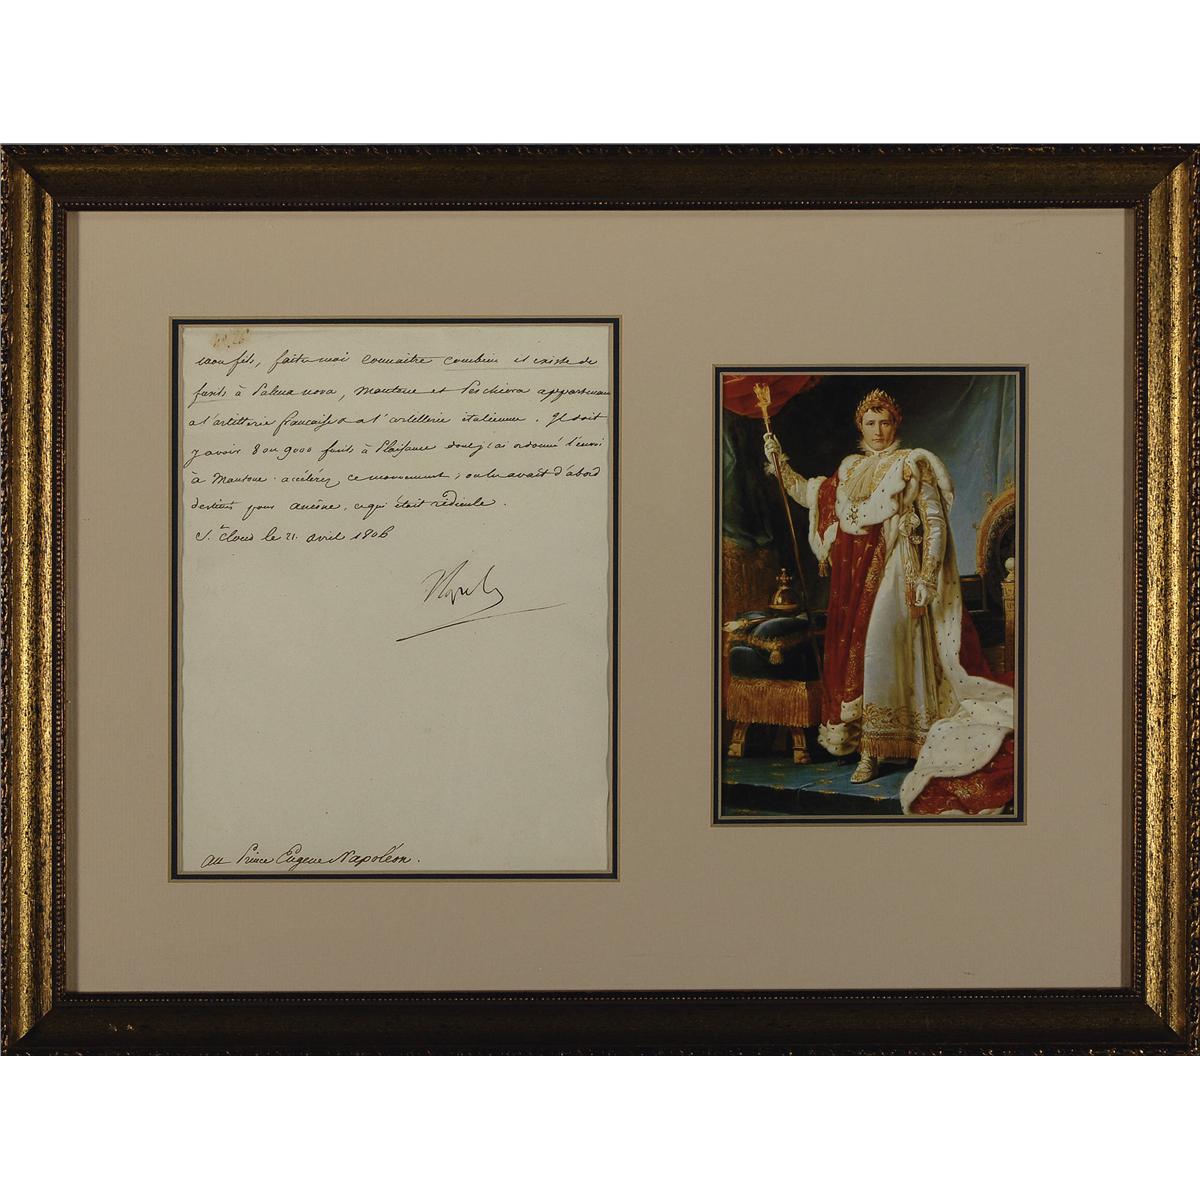 mon fils, faites moi connaitre combien il existe de
fusils à Palma nova, Mantoue et Peschiera appartenans
a l'artillerie française & a l'artillerie italienne. Il doit
y avoir 8 ou 9000 fusils à Plaisance dont j'ai ordonné l'envoi
à Mantoue. accélérez ce mouvement; on les avait d'abord
destinés pour ancône, ce qui était ridicule.
St. Cloud le 21 avril 1806
Napole
au Prince Eugene Napoléon.